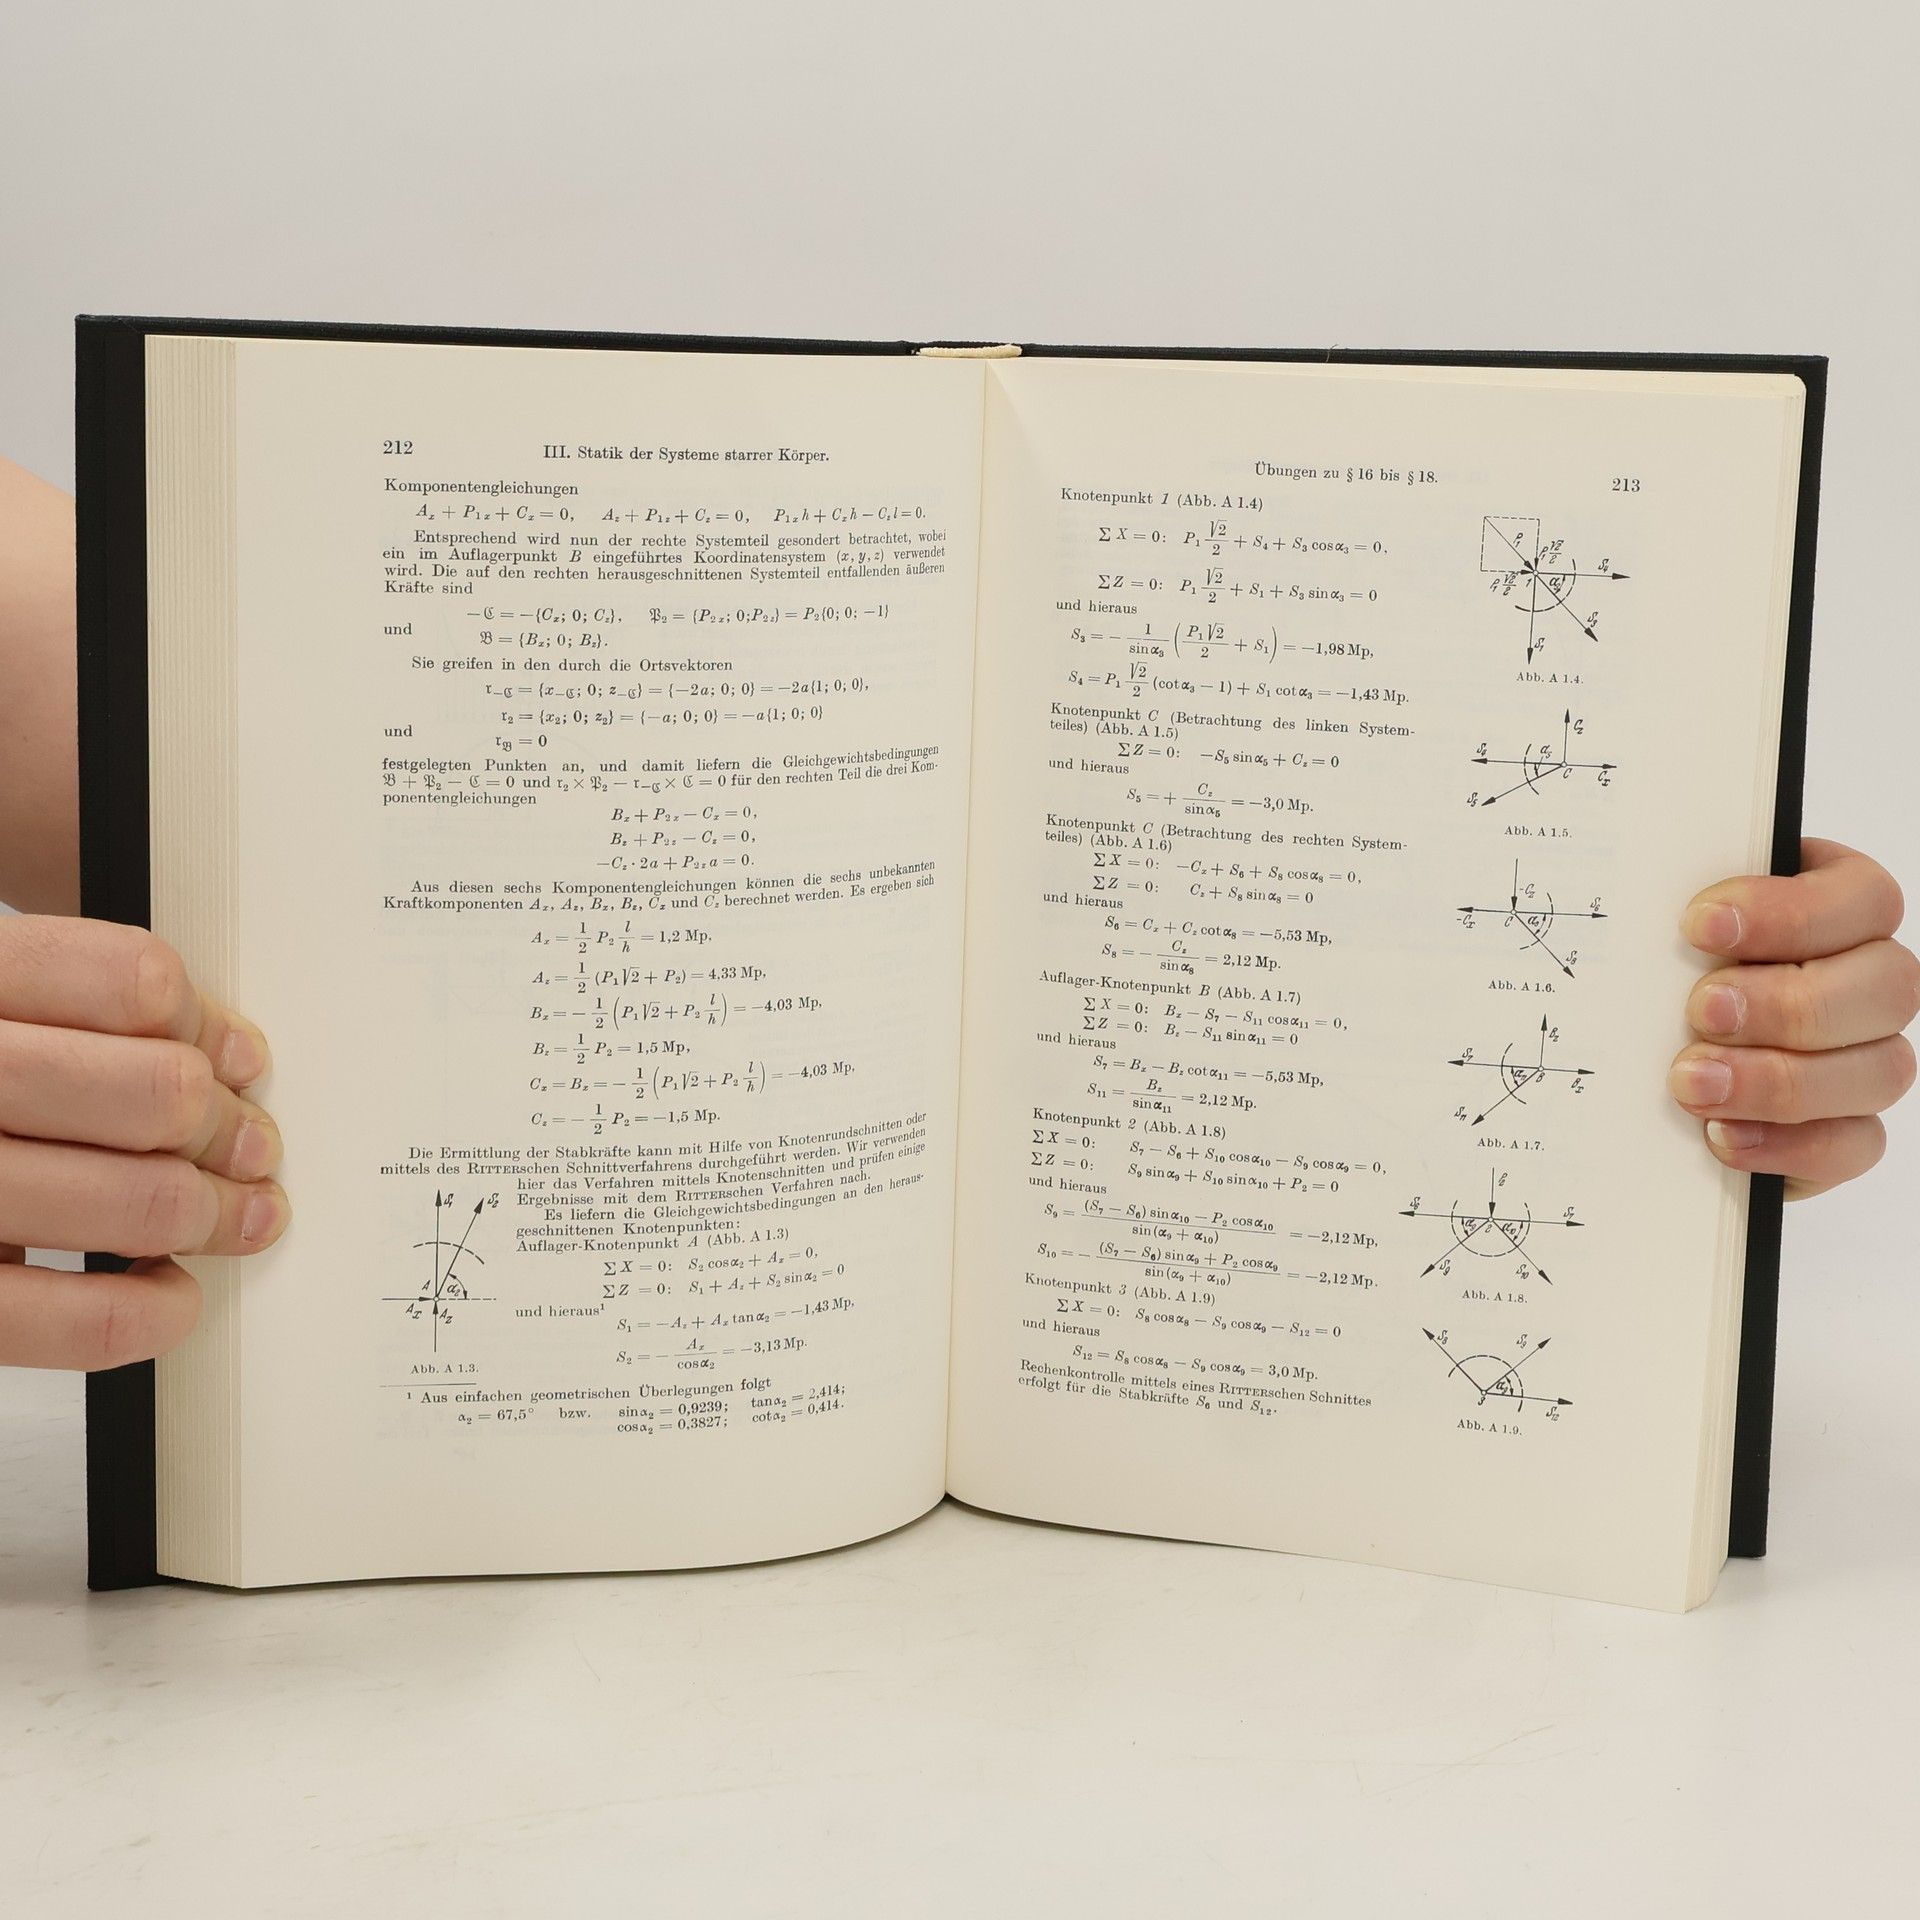 212
III. Statik der Systeme starrer Körper.
Komponentengleichungen
Aₓ + P₁ₓ + Cₓ = 0, A_z + P₁_z + C_z = 0, P₁ₓh + Cₓh − C_z l = 0.
Entsprechend wird nun der rechte Systemteil gesondert betrachtet, wobei
ein im Auflagerpunkt B eingeführtes Koordinatensystem (x, y, z) verwendet
wird. Die auf den rechten herausgeschnittenen Systemteil entfallenden äußeren
Kräfte sind
−ℭ = −{Cₓ; 0; C_z}, 𝔓₂ = {P₂ₓ; 0; P₂_z} = P₂{0; 0; −1}
und
𝔅 = {Bₓ; 0; B_z}.
Sie greifen in den durch die Ortsvektoren
𝔯_−ℭ = {x_−ℭ; 0; z_−ℭ} = {−2a; 0; 0} = −2a{1; 0; 0},
𝔯₂ = {x₂; 0; z₂} = {−a; 0; 0} = −a{1; 0; 0}
und
𝔯_𝔅 = 0
festgelegten Punkten an, und damit liefern die Gleichgewichtsbedingungen
𝔅 + 𝔓₂ − ℭ = 0 und 𝔯₂ × 𝔓₂ − 𝔯_−ℭ × ℭ = 0 für den rechten Teil die drei Kom-
ponentengleichungen
Bₓ + P₂ₓ − Cₓ = 0,
B_z + P₂_z − C_z = 0,
−C_z · 2a + P₂_z a = 0.
Aus diesen sechs Komponentengleichungen können die sechs unbekannten
Kraftkomponenten Aₓ, A_z, Bₓ, B_z, Cₓ und C_z berechnet werden. Es ergeben sich
Aₓ = 1/2 P₂ l/h = 1,2 Mp,
A_z = 1/2 (P₁√2 + P₂) = 4,33 Mp,
Bₓ = − 1/2 (P₁√2 + P₂ l/h) = −4,03 Mp,
B_z = 1/2 P₂ = 1,5 Mp,
Cₓ = Bₓ = − 1/2 (P₁√2 + P₂ l/h) = −4,03 Mp,
C_z = − 1/2 P₂ = −1,5 Mp.
Die Ermittlung der Stabkräfte kann mit Hilfe von Knotenrundschnitten oder
mittels des RITTERschen Schnittverfahrens durchgeführt werden. Wir verwenden
hier das Verfahren mittels Knotenschnitten und prüfen einige
Ergebnisse mit dem RITTERschen Verfahren nach.
Es liefern die Gleichgewichtsbedingungen an den heraus-
geschnittenen Knotenpunkten:
Auflager-Knotenpunkt A (Abb. A 1.3)
∑ X = 0: S₂ cos α₂ + Aₓ = 0,
∑ Z = 0: S₁ + A_z + S₂ sin α₂ = 0
und hieraus¹
S₁ = −A_z + Aₓ tan α₂ = −1,43 Mp,
S₂ = − Aₓ/cos α₂ = −3,13 Mp.
S₁ S₂
A α₂
Aₓ A_z
Abb. A 1.3.
¹ Aus einfachen geometrischen Überlegungen folgt
α₂ = 67,5° bzw. sin α₂ = 0,9239; tan α₂ = 2,414;
cos α₂ = 0,3827; cot α₂ = 0,414.
Übungen zu § 16 bis § 18.
213
Knotenpunkt 1 (Abb. A 1.4)
∑ X = 0: P₁ √2/2 + S₄ + S₃ cos α₃ = 0,
∑ Z = 0: P₁ √2/2 + S₁ + S₃ sin α₃ = 0
und hieraus
S₃ = − 1/sin α₃ (P₁√2/2 + S₁) = −1,98 Mp,
S₄ = P₁ √2/2 (cot α₃ − 1) + S₁ cot α₃ = −1,43 Mp.
P₁ P₁√2/2 S₄
P₁√2/2 1 α₃
S₃
S₁
Abb. A 1.4.
Knotenpunkt C (Betrachtung des linken System-
teiles) (Abb. A 1.5)
∑ Z = 0: −S₅ sin α₅ + C_z = 0
und hieraus
S₅ = + C_z/sin α₅ = −3,0 Mp.
C_z
α₅
C Cₓ
S₅
Abb. A 1.5.
Knotenpunkt C (Betrachtung des rechten System-
teiles) (Abb. A 1.6)
∑ X = 0: −Cₓ + S₆ + S₈ cos α₈ = 0,
∑ Z = 0: C_z + S₈ sin α₈ = 0
und hieraus
S₆ = Cₓ + C_z cot α₈ = −5,53 Mp,
S₈ = − C_z/sin α₈ = 2,12 Mp.
−C_z
S₆
−Cₓ C α₈
S₈
Abb. A 1.6.
Auflager-Knotenpunkt B (Abb. A 1.7)
∑ X = 0: Bₓ − S₇ − S₁₁ cos α₁₁ = 0,
∑ Z = 0: B_z − S₁₁ sin α₁₁ = 0
und hieraus
S₇ = Bₓ − B_z cot α₁₁ = −5,53 Mp,
S₁₁ = B_z/sin α₁₁ = 2,12 Mp.
B_z
S₇
α₁₁ B Bₓ
S₁₁
Abb. A 1.7.
Knotenpunkt 2 (Abb. A 1.8)
∑ X = 0: S₇ − S₆ + S₁₀ cos α₁₀ − S₉ cos α₉ = 0,
∑ Z = 0: S₉ sin α₉ + S₁₀ sin α₁₀ + P₂ = 0
und hieraus
S₉ = (S₇ − S₆) sin α₁₀ − P₂ cos α₁₀/sin (α₉ + α₁₀) = −2,12 Mp,
S₁₀ = − (S₇ − S₆) sin α₉ + P₂ cos α₉/sin (α₉ + α₁₀) = −2,12 Mp.
P₂
S₆ S₇
α₉ 2 α₁₀
S₉ S₁₀
Abb. A 1.8.
Knotenpunkt 3 (Abb. A 1.9)
∑ X = 0: S₈ cos α₈ − S₉ cos α₉ − S₁₂ = 0
und hieraus
S₁₂ = S₈ cos α₈ − S₉ cos α₉ = 3,0 Mp.
Rechenkontrolle mittels eines RITTERschen Schnittes
erfolgt für die Stabkräfte S₆ und S₁₂.
S₈ S₉
3 α₉
S₁₂
Abb. A 1.9.